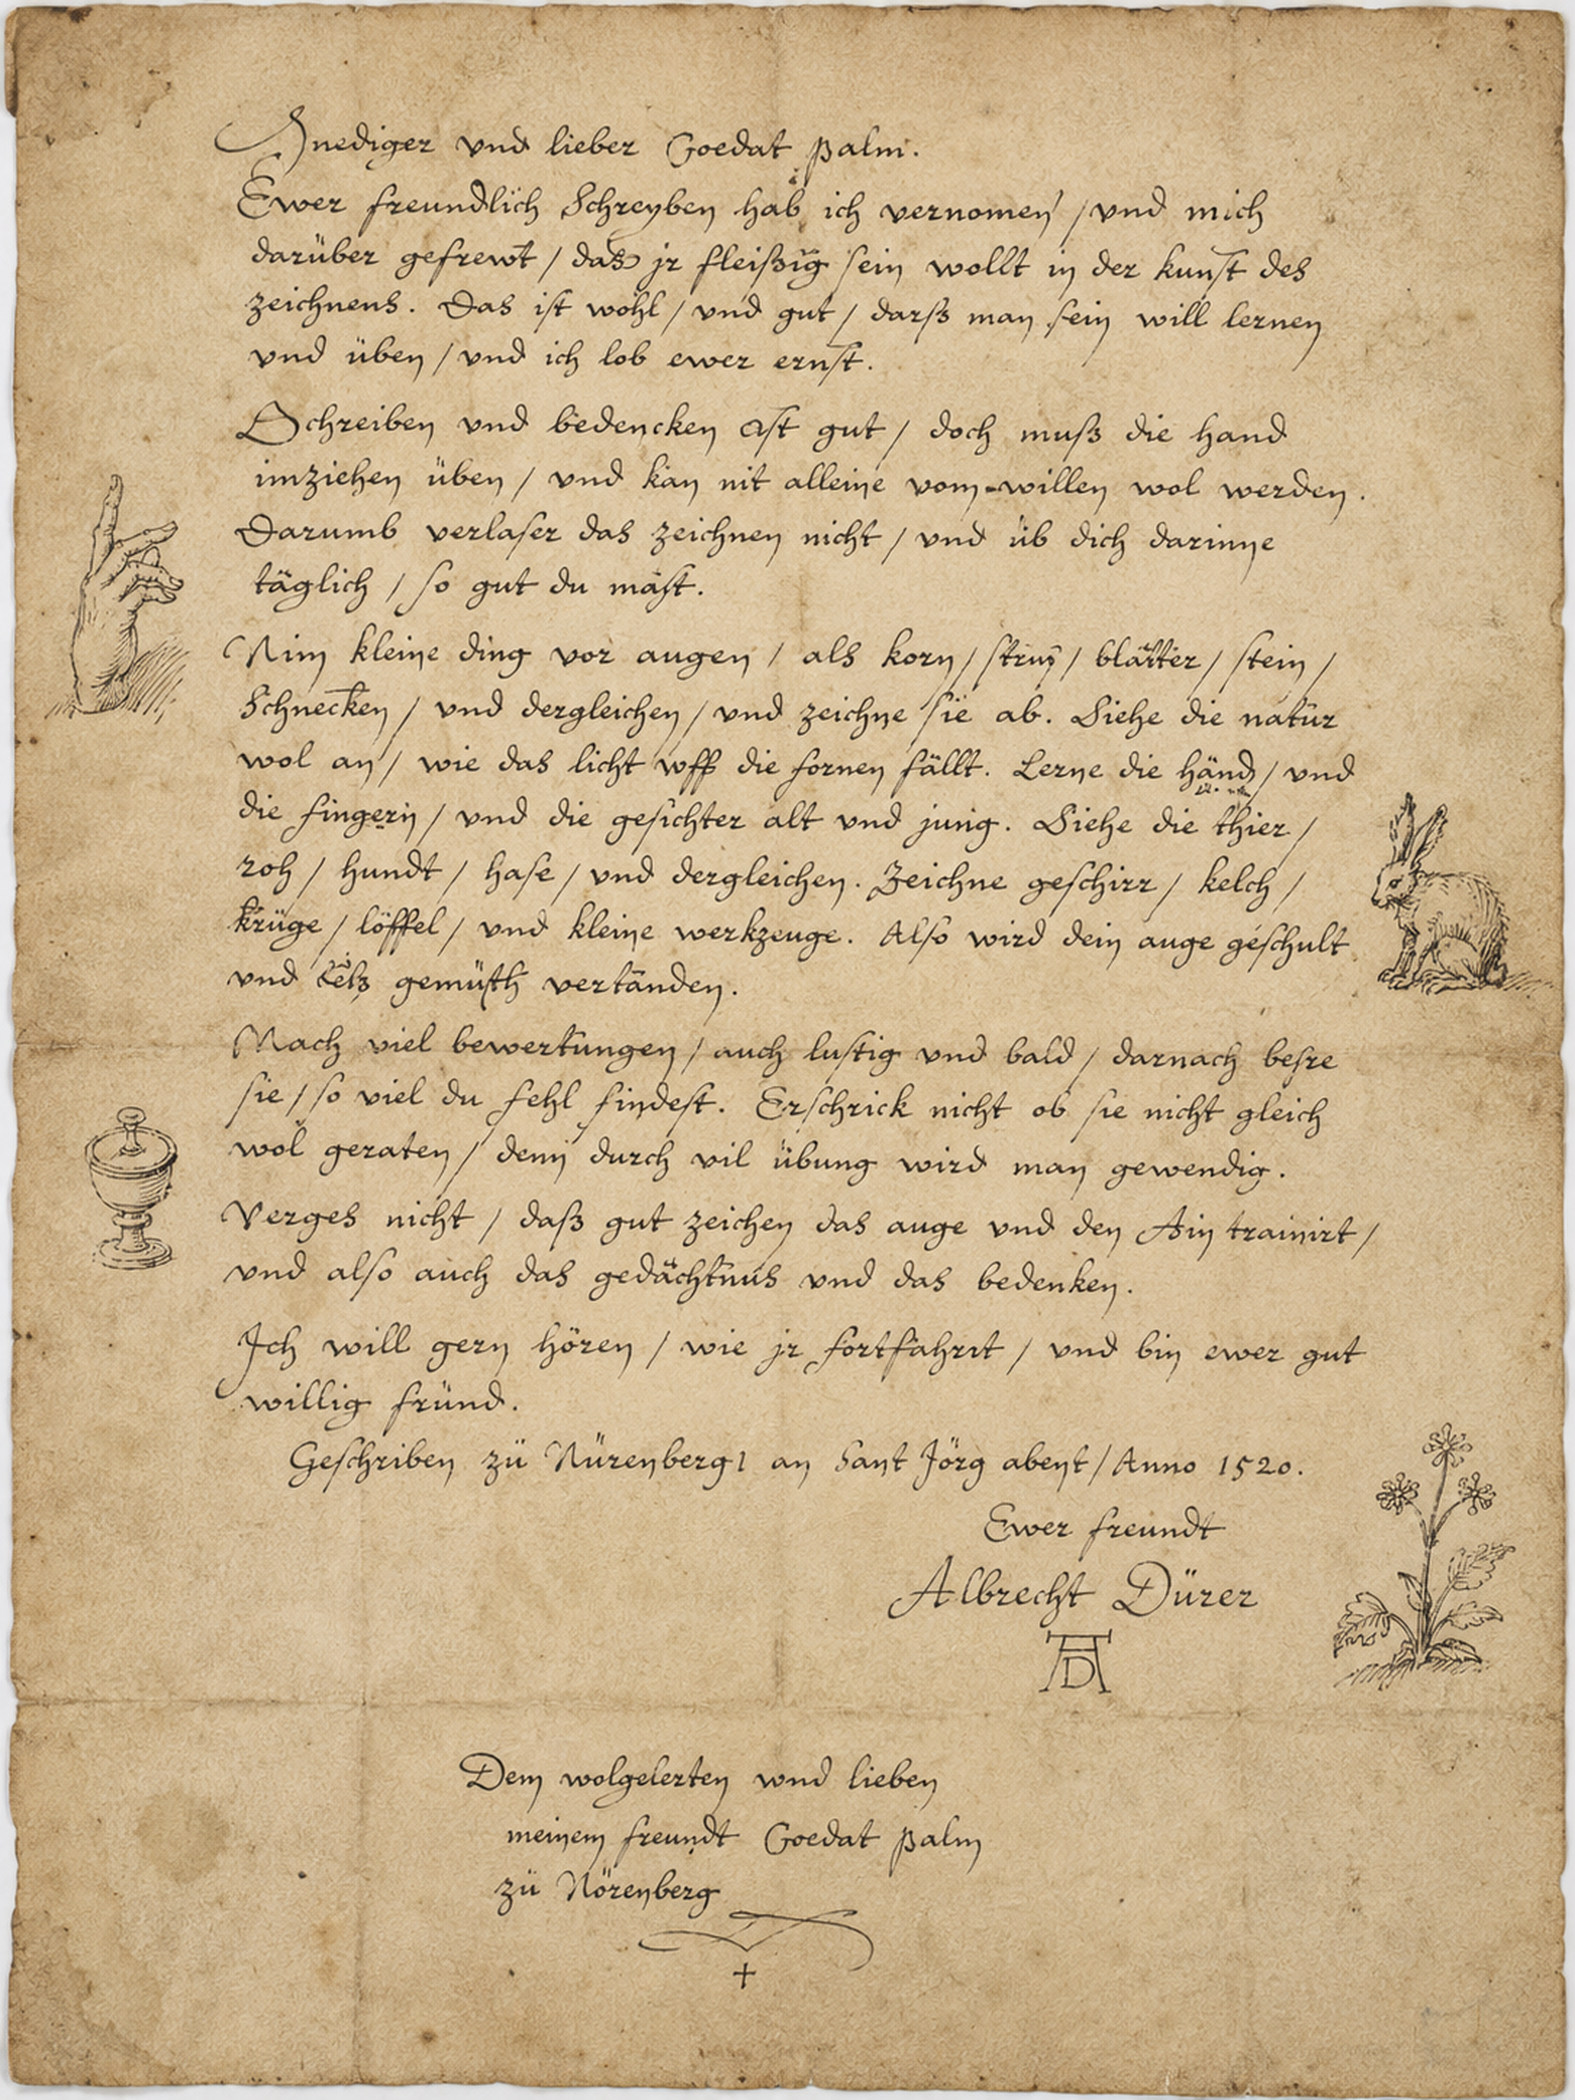 Gnediger vnd lieber Goedat Palm.
Ewer freundlich Schreyben hab ich vernomen / vnd mich
darüber gefrewt / das jr fleißig sein wollt in der kunst des
zeichnens. Das ist wohl / vnd gut / darß man sein will lernen
vnd üben / vnd ich lob ewer ernst.
Schreiben vnd bedencken ist gut / doch muß die hand
imziehen üben / vnd kan nit alleine vom willen wol werden.
Darumb verlaser das zeichnen nicht / vnd üb dich darinne
täglich / so gut du mast.
Nim kleine ding vor augen / als korn / / blätter / stein /
Schnecken / vnd dergleichen / vnd zeichne sie ab. Siehe die natur
wol an / wie das licht wff die fornen fällt. Lerne die händ / vnd
die fingern / vnd die gesichter alt vnd jung. Siehe die thier /
roh / hundt / hase / vnd dergleichen. Zeichne geschirr / kelch /
krüge / löffel / vnd kleine werkzeuge. Also wird dein auge geschult
vnd gemüth vertanden.
Mach viel bewertungen / auch lustig vnd bald / darnach besre
sie / so viel du fehl findest. Erschrick nicht ob sie nicht gleich
wol geraten / denn durch vil übung wird man gewendig.
Verges nicht / daß gut zeichen das auge vnd den trainirt /
vnd also auch das gedächtnus vnd das bedenken.
Ich will gern hören / wie jr fortfahrt / vnd bin ewer gut
willig fründ.
Geschriben zü Nürenberg / an Sant Jörg abent / Anno 1520.
Ewer freundt
Albrecht Dürer
AD
Dem wolgelerten vnd lieben
meinem freundt Goedat Palm
zü Nörenberg